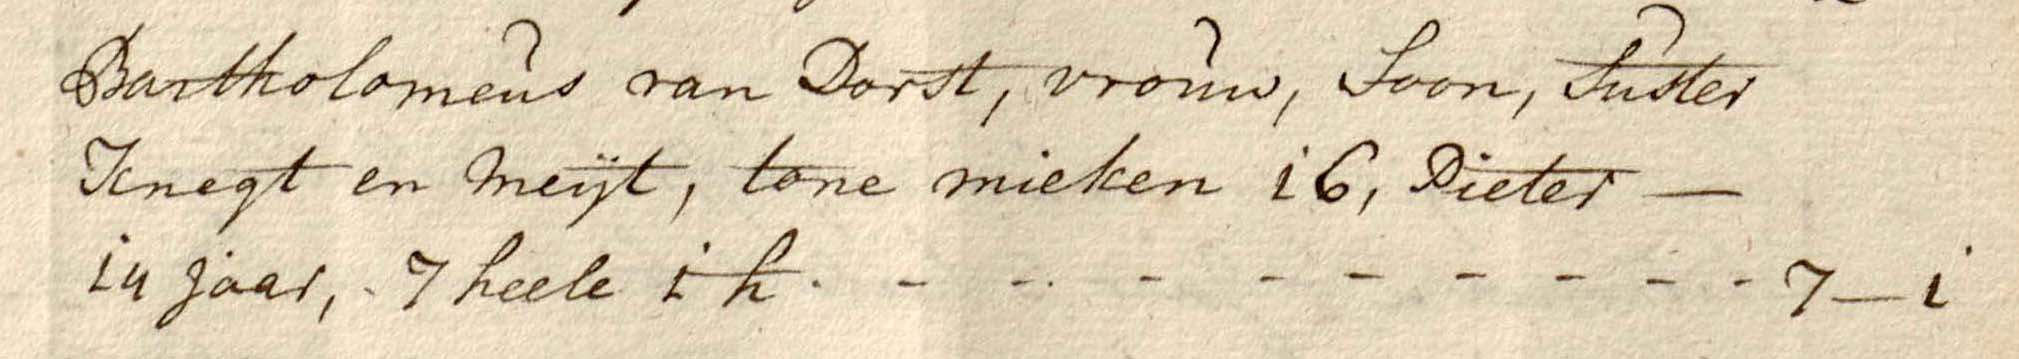 Bartholomeus van Dorst, vrouw, Soon, Suster
Knegt en Meijt, tone mieken i6, Pieter —
i4 jaar, - 7 heele i h - - - - - - - - - - 7 — i